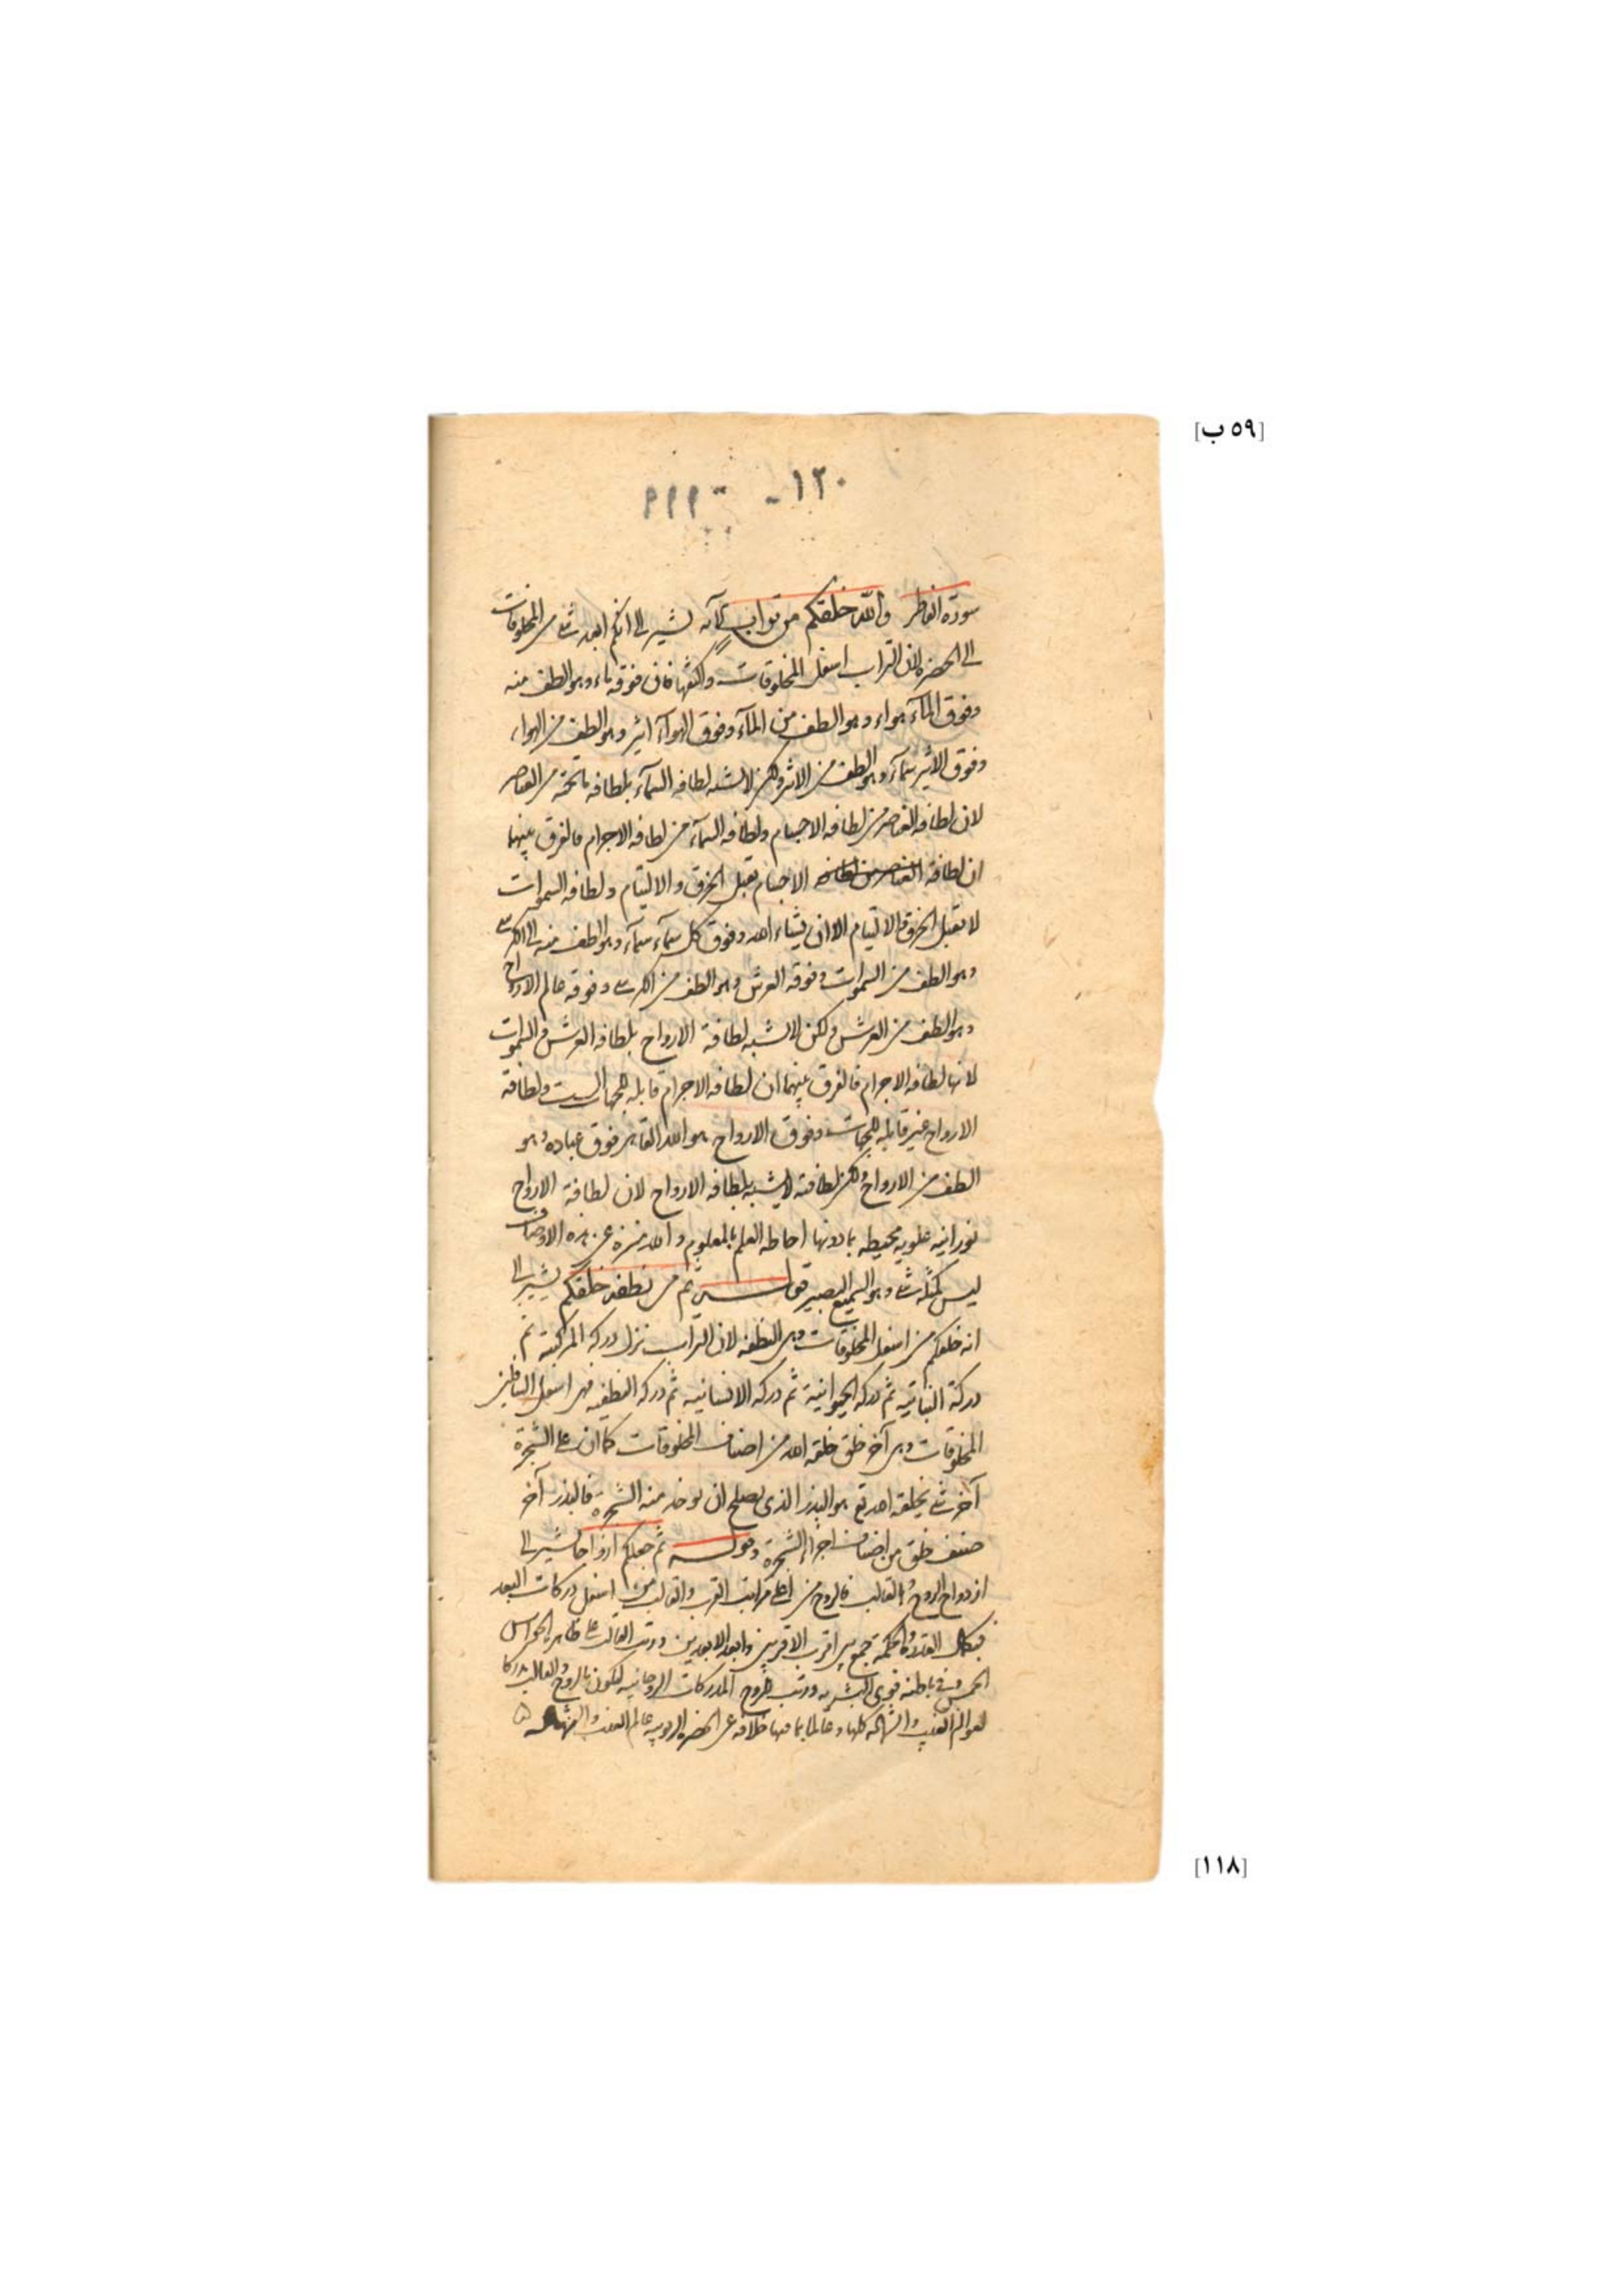 [٥٩ ب]
١٢٠ -
سورة الفاطر والله خلقكم من تراب الآية يشير الى انكم ابعد شئ من المخلوقات
الى الحضرة لان التراب اسفل المخلوقات واكثفها فان فوقه ماء وهو الطف منه
وفوق الماء هواء وهو الطف من الماء وفوق الهواء اثير وهو الطف من الهواء
وفوق الاثير سماء وهو الطف من الاثير ولكن لا يشبه لطافه السماء بلطافه ما تحته من العناصر
لان لطافه العناصر من لطافه الاجسام ولطافه السماء من لطافه الاجرام فالفرق بينهما
ان لطافة العناصر من لطافه الاجسام يقبل الخرق والالتيام ولطافه السموات
لا يقبل الخرق والالتيام الا ان يشاء الله وفوق كل سماء سماء وهو الطف منه الى الكرسى
وهو الطف من السموات وفوقه العرش وهو الطف من الكرسى وفوقه عالم الارواح
وهو الطف من العرش ولكن لا يشبه لطافة الارواح بلطافه العرش والسموات
لانها لطافه الاجرام فالفرق بينهما ان لطافه الاجرام قابله للجهات الست ولطافة
الارواح غير قابله للجهات وفوق الارواح هو الله القاهر فوق عباده وهو
الطف من الارواح ولكن لطافته لا يشبه بلطافه الارواح لان لطافة الارواح
نورانيه علويه محيطه بما دونها احاطه العلم بالمعلوم والله منزه عن هذه الاوصاف
ليس كمثله شئ وهو السميع البصير قوله ثم من نطفه خلقكم يشير الى
انه خلقكم من اسفل المخلوقات وهى النطفه لان التراب نزل دركه المركبية ثم
دركة النباتية ثم دركه الحيوانية ثم دركه الانسانيه ثم دركه النطفيه فهى اسفل السافلين
المخلوقات وهى آخر خلق خلقه الله من اصناف المخلوقات كما ان على الشجرة
آخر شئ يخلقه الله تع هو البذر الذى يصلح ان يوخد منه الشجرة فالبذر آخر
صنف خلق من اصناف اجزاء الشجرة وقوله ثم جعلكم ازواجا يشير الى
ازدواج الروح والقالب فالروح من اعلى مراتب القرب والقالب من اسفل دركات البعد
فبكمال القدرة والحكمة جمع بين اقرب الاقربين وابعد الابعدين ورتب القالب على ظاهره الحواس
الخمس وفى باطنه قوى البشريه ورتب الروح المدركات الروحانيه ليكون بالروح والقالب مدركا
لعوالم الغيب والشهاده كلها وعالما بما فيها خلافه عن الحضره الربوبيه عالم الغيب والشهاده
[١١٨]